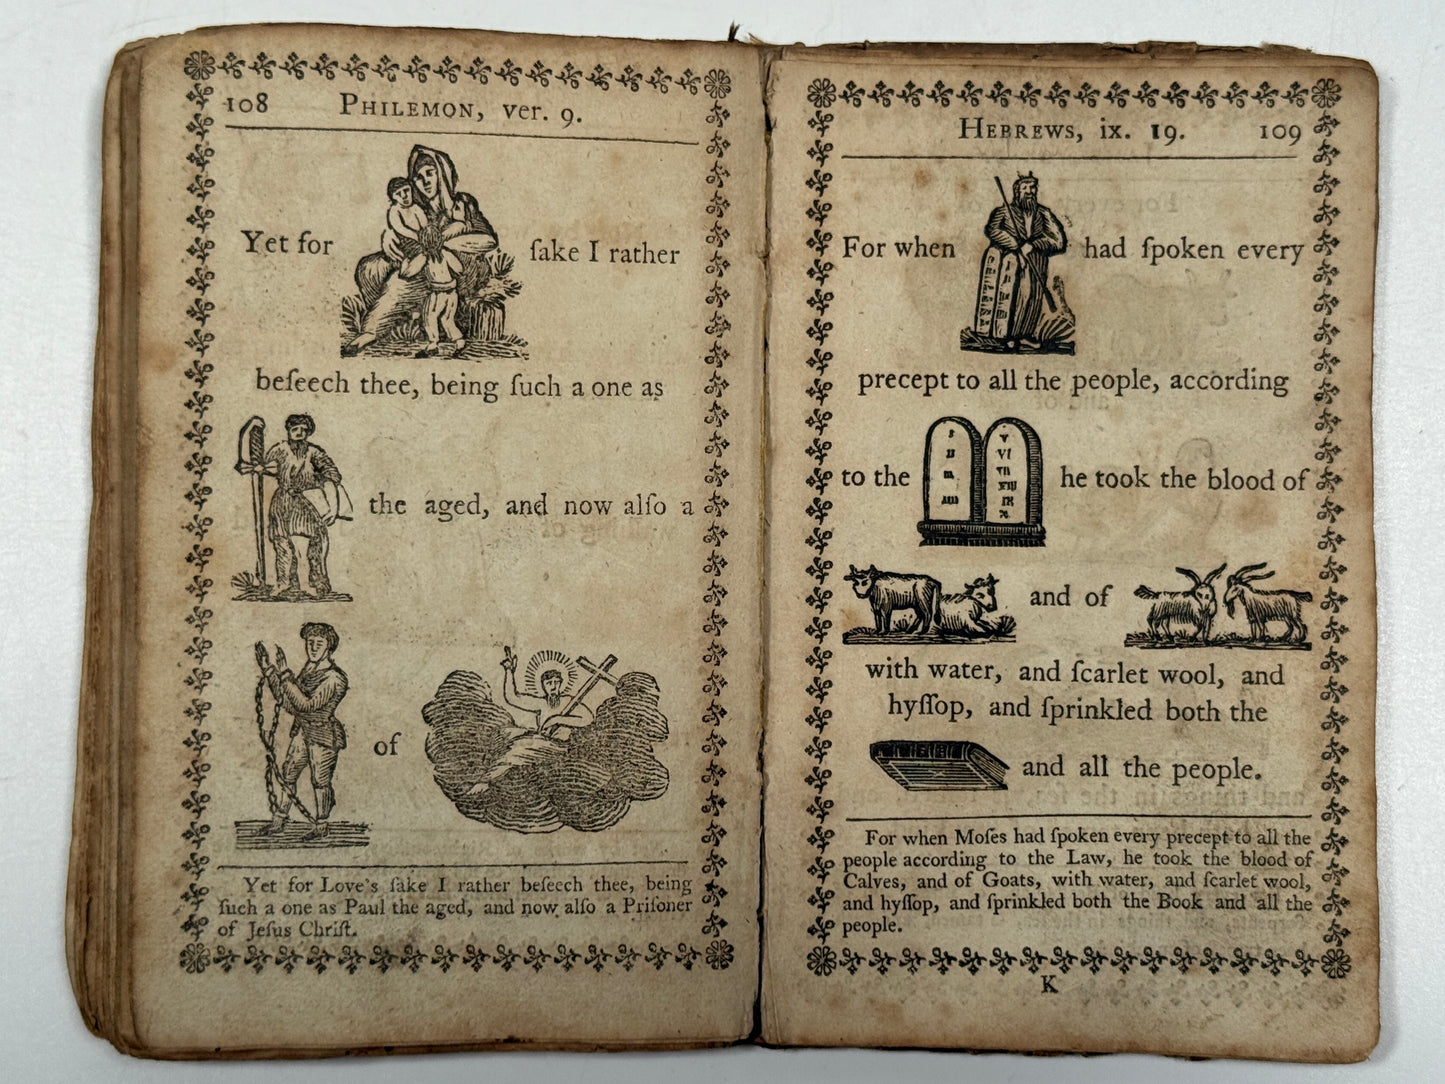 108 PHILEMON, ver. 9.
Yet for ſake I rather
beſeech thee, being ſuch a one as
the aged, and now alſo a
of
Yet for Love's ſake I rather beſeech thee, being
ſuch a one as Paul the aged, and now alſo a Priſoner
of Jeſus Chriſt.
HEBREWS, ix. 19. 109
For when had ſpoken every
precept to all the people, according
to the he took the blood of
I
II
III
IIII
V
VI
VII
VIII
IX
X
and of
with water, and ſcarlet wool, and
hyſſop, and ſprinkled both the
and all the people.
For when Moſes had ſpoken every precept to all the
people according to the Law, he took the blood of
Calves, and of Goats, with water, and ſcarlet wool,
and hyſſop, and ſprinkled both the Book and all the
people.
K